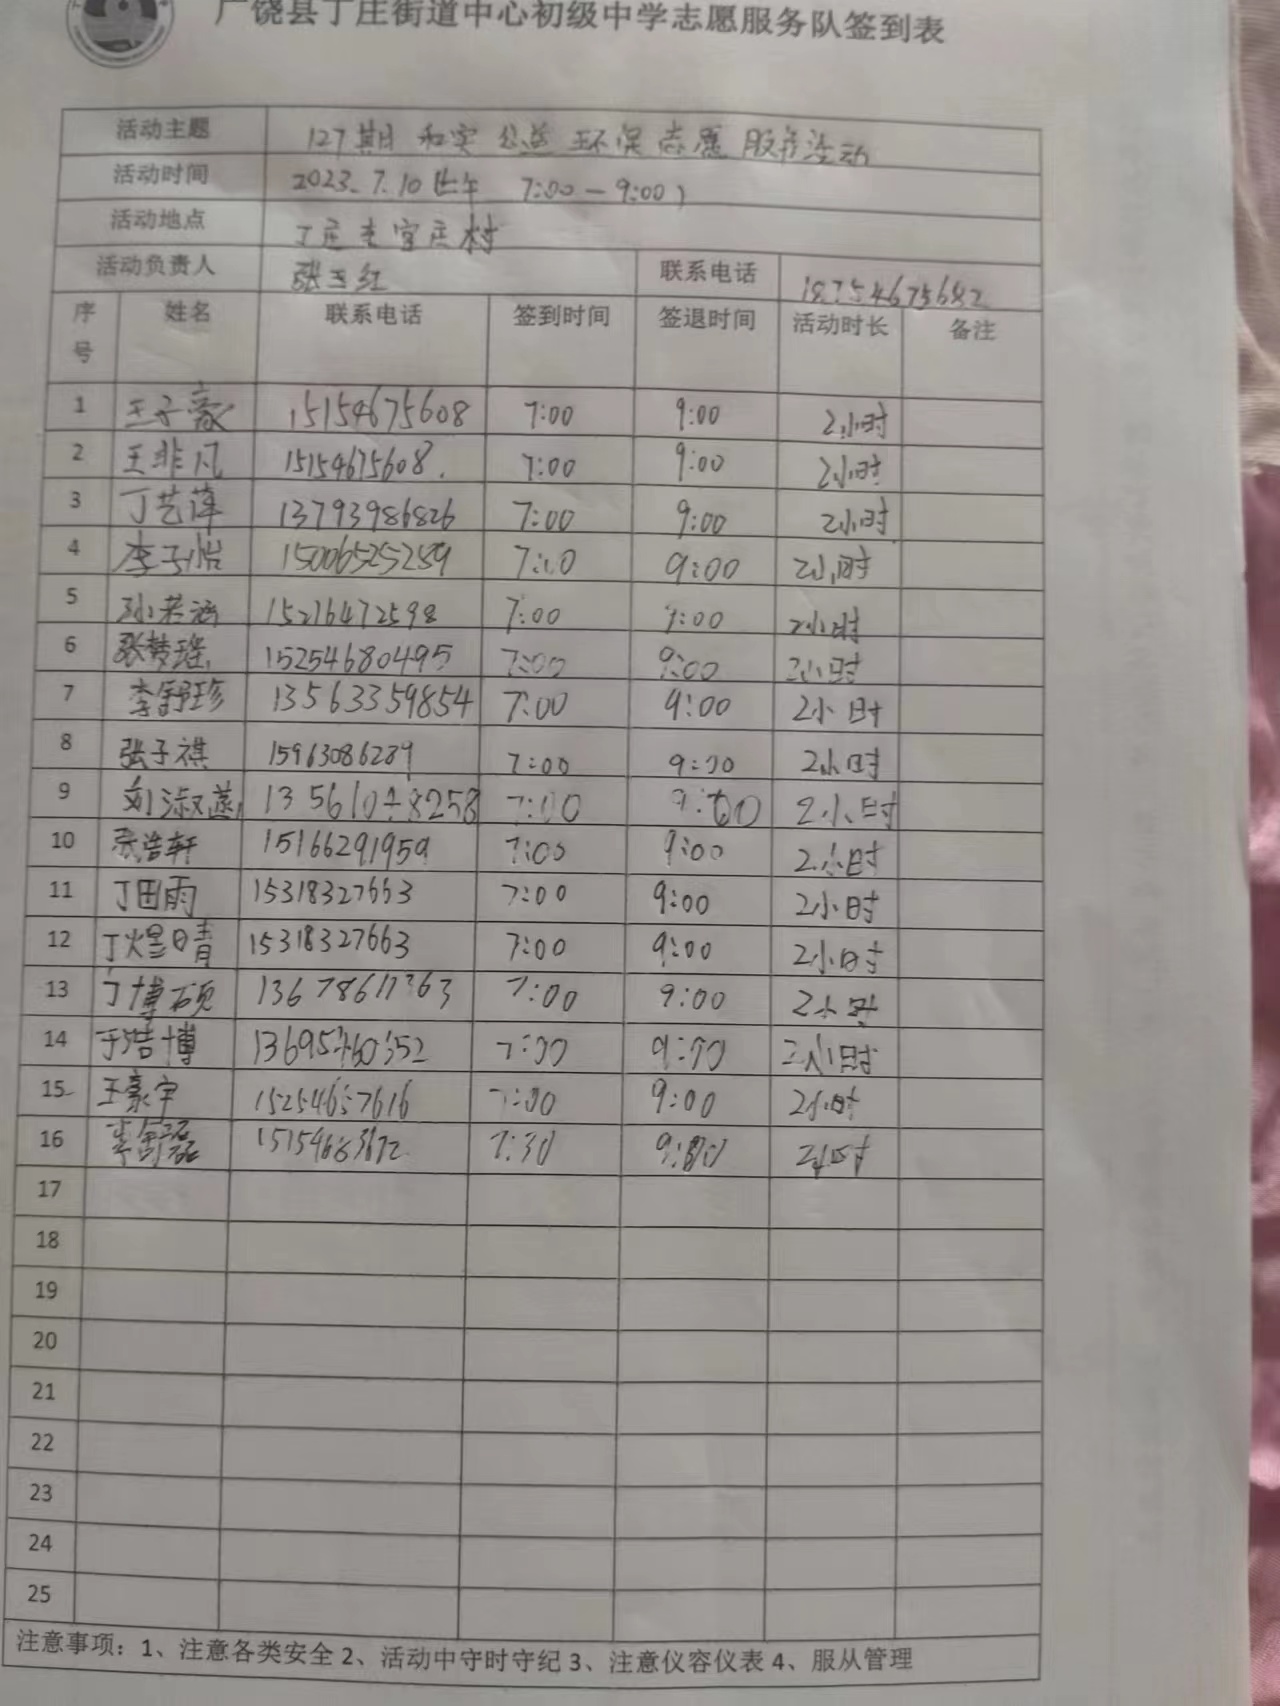 广饶县丁庄街道中心初级中学志愿服务队签到表
活动主题 127期 和实 公益 环保 志愿 服务活动
活动时间 2023.7.10(上午 7:00—9:00)
活动地点 丁庄 官庄村
活动负责人 张玉红 联系电话 18754675682
序号 姓名 联系电话 签到时间 签退时间 活动时长 备注
1 王子豪 15154675608 7:00 9:00 2小时
2 王非凡 15154675608. 7:00 9:00 2小时
3 丁艺萍 13793986826 7:00 9:00 2小时
4 李子怡 15006525289 7:00 9:00 2小时
5 孙若涵 15216472598 7:00 9:00 2小时
6 张梦瑶 15254680495 7:00 9:00 2小时
7 李舒珍 13563359854 7:00 9:00 2小时
8 张子祺 15963086289 7:00 9:00 2小时
9 刘淑 13561048258 7:00 9:00 2小时
10 张浩轩 15166291959 7:00 9:00 2小时
11 丁田雨 15318327663 7:00 9:00 2小时
12 丁煜晴 15318327663 7:00 9:00 2小时
13 丁博硕 13678617363 7:00 9:00 2小时
14 于浩博 13695460352 7:00 9:00 2小时
15 王豪宇 15254657616 7:00 9:00 2小时
16 李 磊 7:30 9:00 2小时
17
18
19
20
21
22
23
24
25
注意事项：1、注意各类安全 2、活动中守时守纪 3、注意仪容仪表 4、服从管理